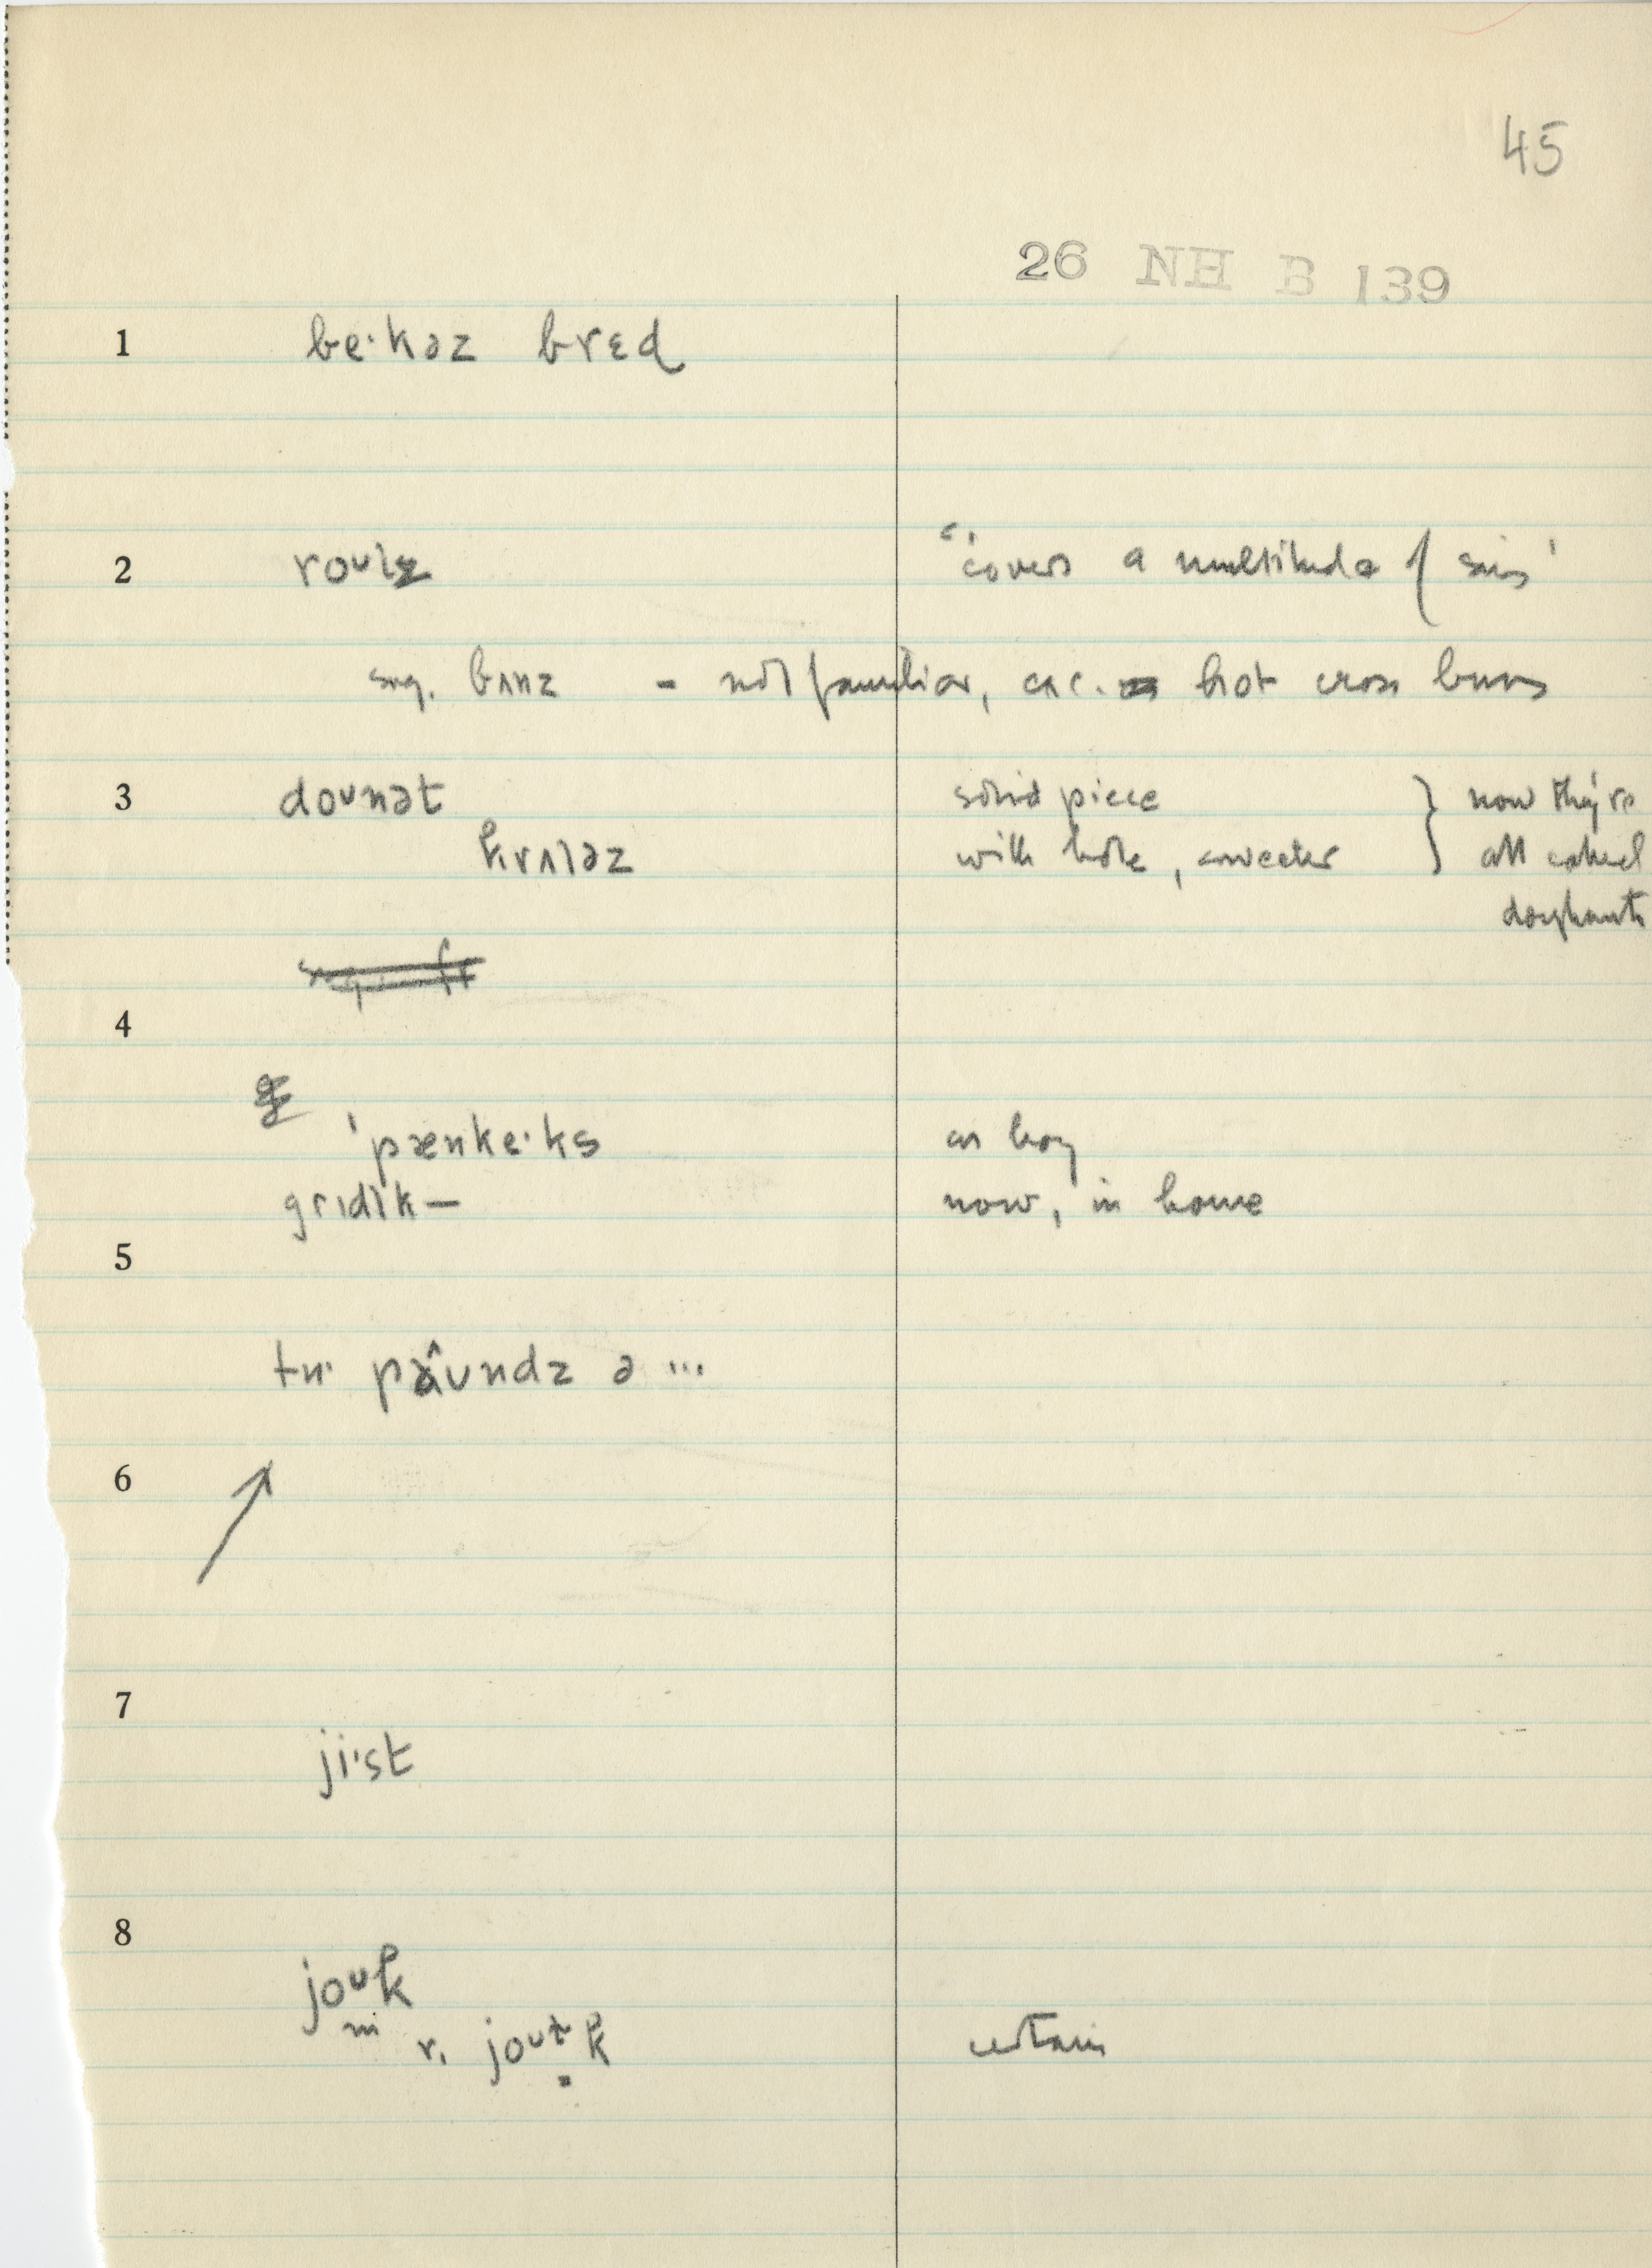 45
26 NH B 139
1 be·kəz brɛd
2 roʊlz "covers a multitude of sins'
sug. bʌnz - not familiar, exc. hot cross buns
3 doʊnət solid piece } now they're
krʌləz with hole, sweeter all called
doughnuts
4
'pænke·ks as boy
grɪdlk — now, in home
5
tu· paʊndz ə ...
6
7
ji·st
8
joʊk
r. joʊɫk certain